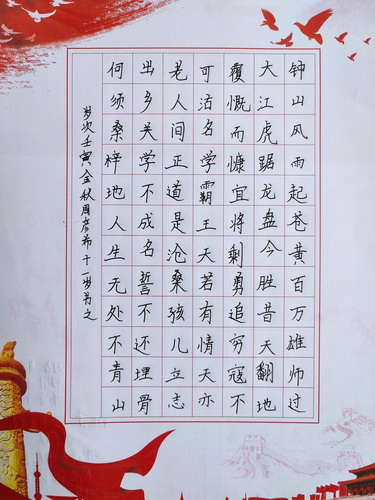 钟山风雨起苍黄百万雄师过
大江虎踞龙盘今胜昔天翻地
覆慨而慷宜将剩勇追穷寇不
可沽名学霸王天若有情天亦
老人间正道是沧桑孩儿立志
出乡关学不成名誓不还埋骨
何须桑梓地人生无处不青山
岁次壬寅金秋周彦希十一岁书之